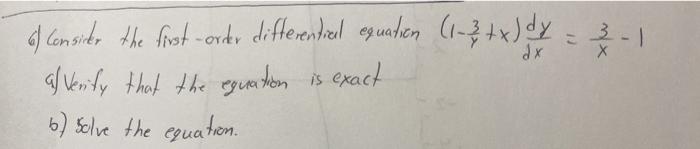 6) Consider the first-order differential equation (1-3/y+x) dy/dx = 3/x - 1
a) Verify that the equation is exact
b) Solve the equation.